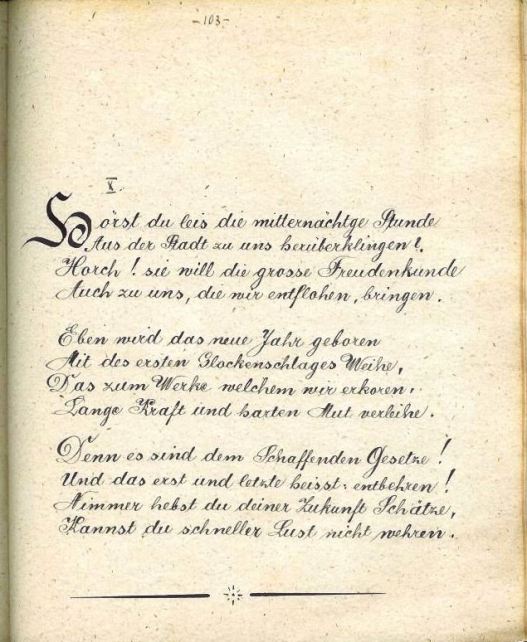 -103-
X.
Hörst du leis die mitternächtge Stunde
Aus der Stadt zu uns herüberklingen?
Horch! sie will die grosse Freudenkunde
Auch zu uns, die wir entflohen, bringen.
Eben wird das neue Jahr geboren
Mit des ersten Glockenschlages Weihe,
Das zum Werke welchem wir erkoren,
Lange Kraft und harten Mut verleihe.
Denn es sind dem Schaffenden Gesetze!
Und das erst und letzte heisst: entbehren!
Nimmer hebst du deiner Zukunft Schätze,
Kannst du schneller Lust nicht wehren.